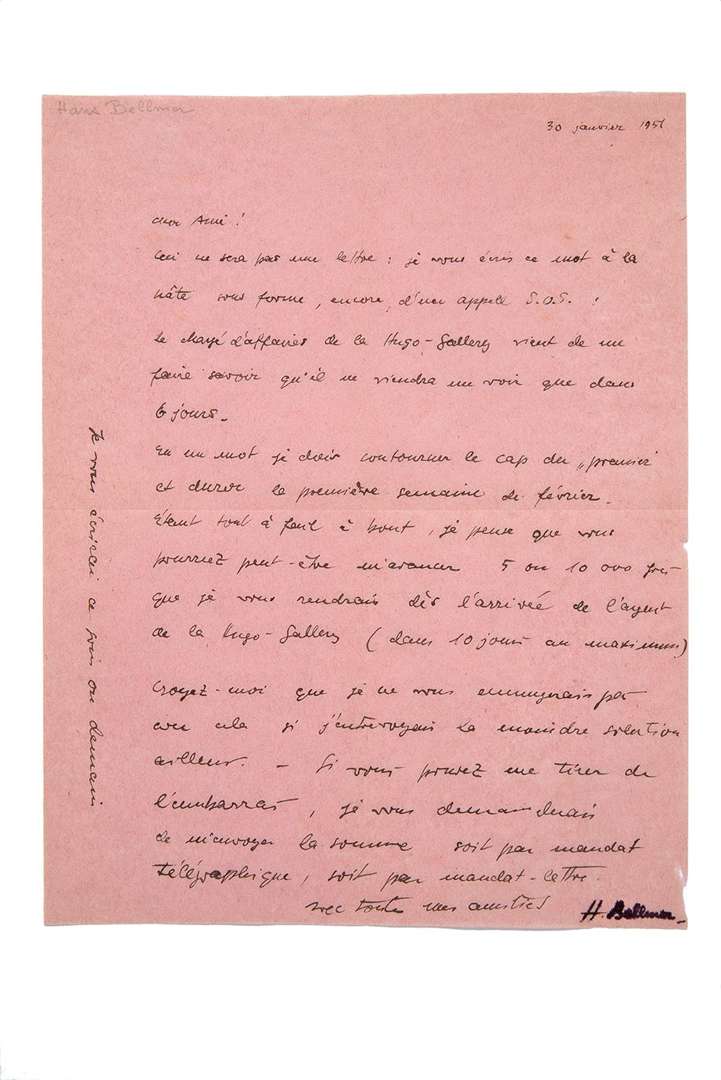 Hans Bellmer
30 janvier 195
cher Ami !
Ceci ne sera pas une lettre : je vous écris ce mot à la
hâte sous forme, encore, d'un appell S.O.S. !
Le chargé d'affaires de la Hugo-Gallery vient de me
faire savoir qu'il ne viendra me voir que dans
6 jours.
En un mot je dois contourner le cap du „premier"
et durer la première semaine de février.
Etant tout à fait à bout, je pense que vous
pourriez peut-être m'avancer 5 ou 10 000 frs
que je vous rendrais dès l'arrivée de l'agent
de la Hugo-Gallery (dans 10 jours au maximum)
Croyez-moi que je ne vous ennuyerais pas
avec cela si j'entrevoyais la moindre solution
ailleurs. – Si vous pouvez me tirer de
l'embarras, je vous demanderais
de m'envoyer la somme soit par mandat
télégraphique, soit par mandat-lettre.
avec toutes mes amitiés H. Bellmer
Je vous écrirai ce soir ou demain